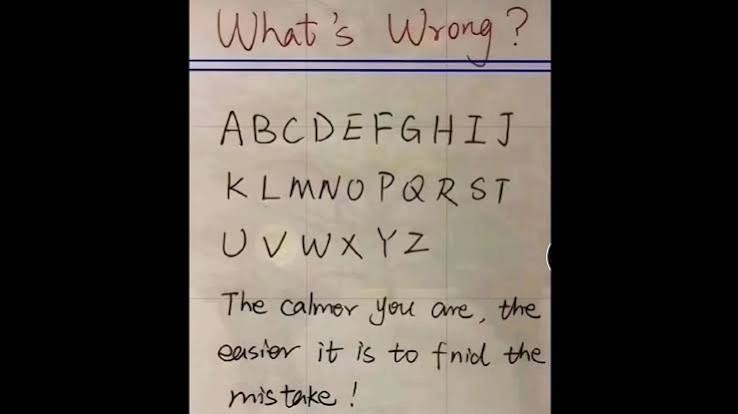 What's Wrong?
A B C D E F G H I J
K L M N O P Q R S T
U V W X Y Z
The calmer you are, the
easier it is to fnid the
mistake!